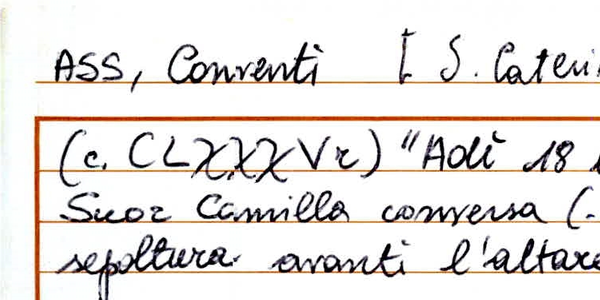 ASS, Conventi [ S. Cateri
(c. CLXXXVr) "Adì 18
Suor Camilla conversa (.
sepoltura avanti l'altare